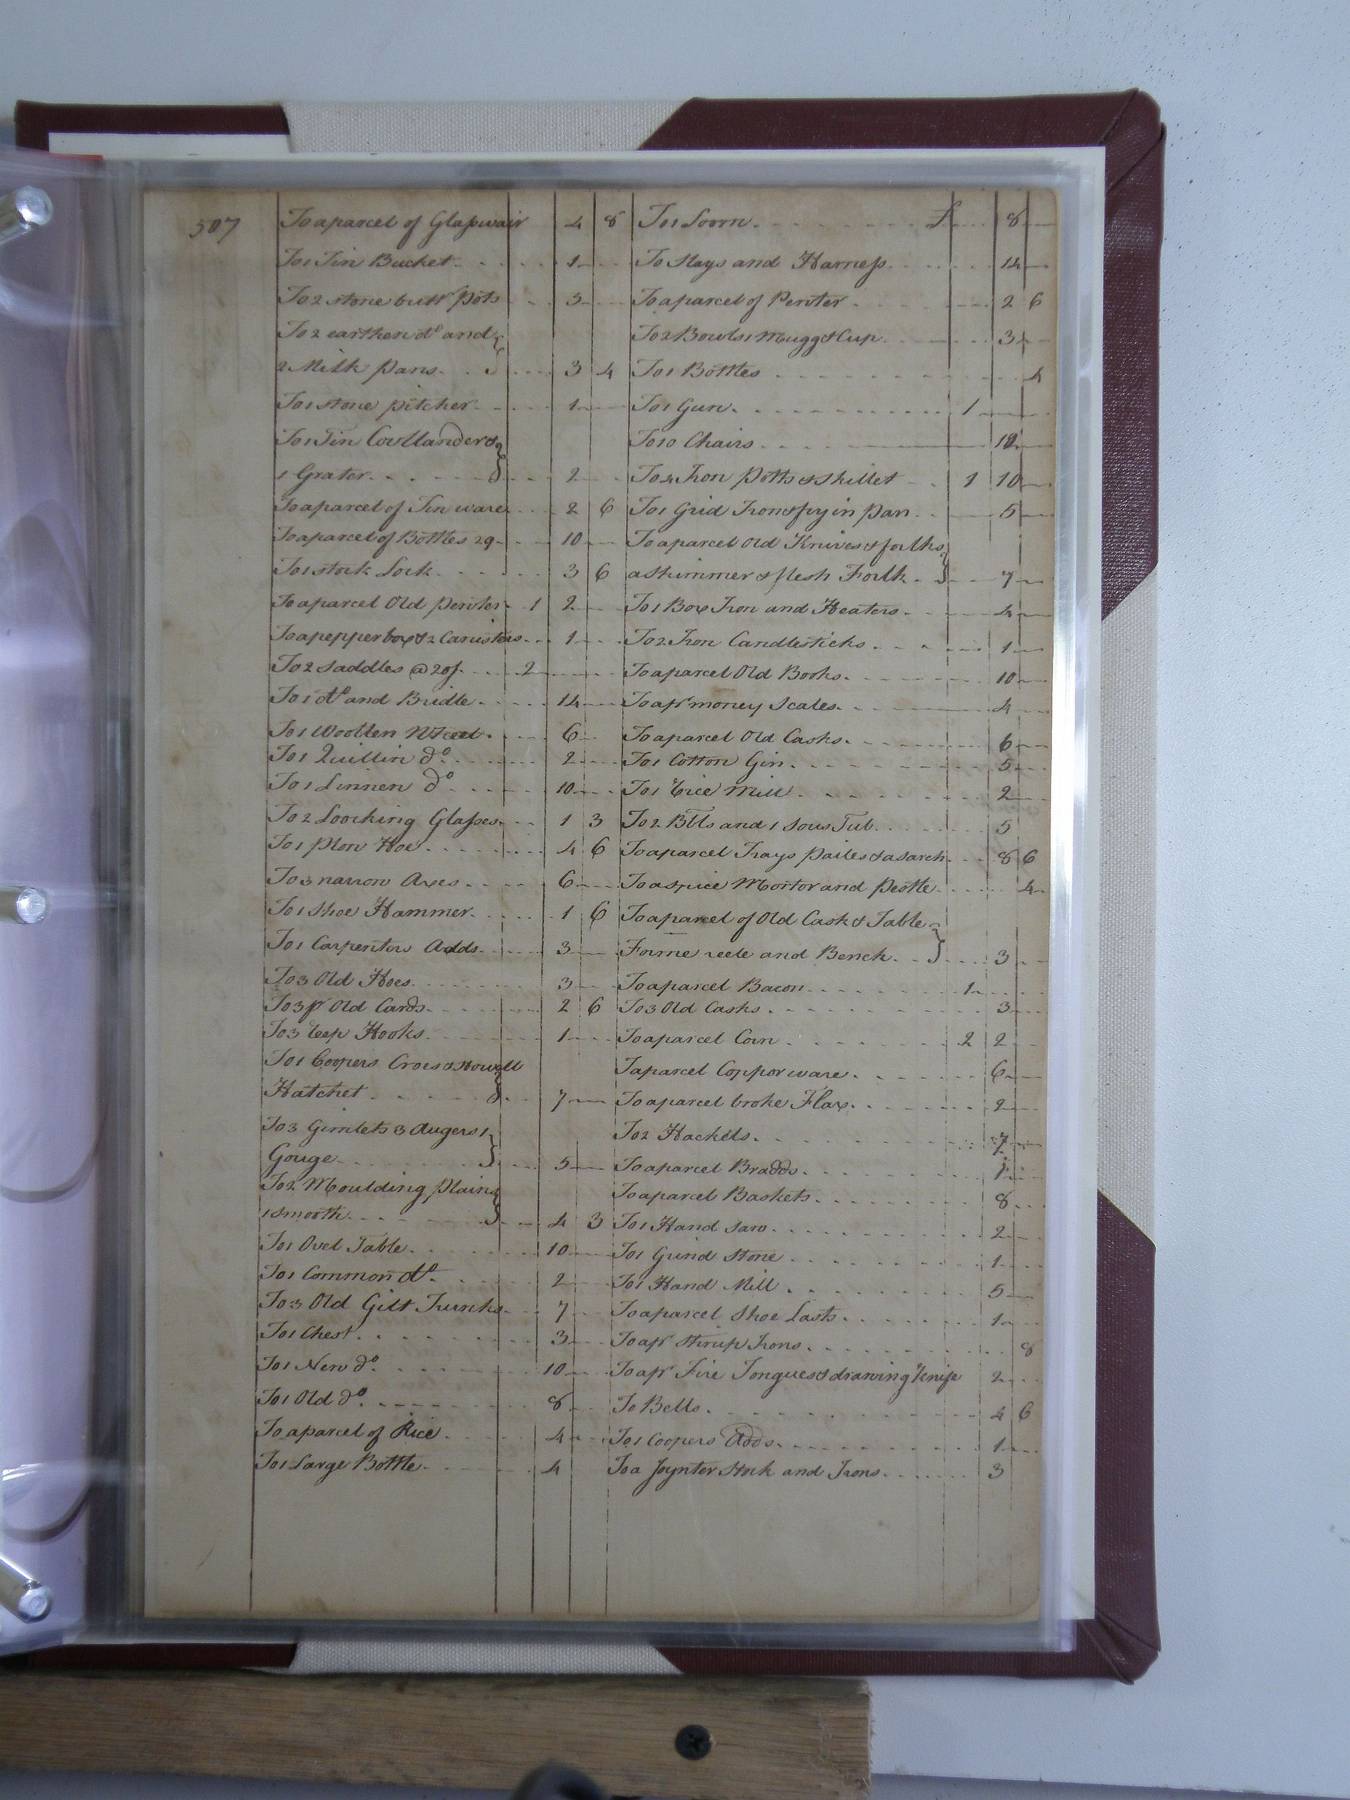 507
To a parcel of Glasswair 4 8
To 1 Tin Bucket 1
To 2 stone butr Pots 3
To 2 earthen do and
2 Milk Pans 3 4
To 1 stone pitcher 1
To 1 Tin Covllander &
1 Grater 2
To a parcel of Tin ware 2 6
To a parcel of Bottles 29 10
To 1 stock Lock 3 6
To a parcel Old Peuter 1 2
To a pepper box & 2 Canisters 1
To 2 Saddles @ 20/ 2
To 1 do and Bridle 14
To 1 Woollen Wheel 6
To 1 Quillin do 2
To 1 Linnen do 10
To 2 Loocking Glasses 1 3
To 1 Plow Hoe 4 6
To 3 narrow Axes 6
To 1 Shoe Hammer 1 6
To 1 Carpenters Adds 3
To 3 Old Hoes 3
To 3 pr Old Cards 2 6
To 3 reep Hooks 1
To 1 Coopers Croes & Howell
Hatchet 7
To 3 Gimlets 3 Augers 1
Gouge 5
To 2 Moulding Plains
1 smooth 4 3
To 1 Ovel Table 10
To 1 Common do 2
To 3 Old Gilt Truncks 7
To 1 Chest 3
To 1 New do 10
To 1 Old do 8
To a parcel of Rice 4
To 1 Large Bottle 4
To 1 Loom £ 8
To Stays and Harness 14
To a parcel of Peuter 2 6
To 2 Bowls 1 Mugg & Cup 3
To 1 Bottles 4
To 1 Gun 1
To 10 Chairs 12
To 4 Iron Potts & Skillet 1 10
To 1 Grid Iron & fryin Pan 5
To a parcel Old Knives & forlks
a Skimmer & flesh Forlk 7
To 1 Box Iron and Heaters 4
To 2 Iron Candlesticks 1
To a parcel Old Books 10
To a pr money Scales 4
To a parcel Old Casks 6
To 1 Cotton Gin 5
To 1 rice Mill 2
To 2 Blls and 1 Sous Tub 5
To a parcel Trays Pailes & a sarch 8 6
To a spice Mortor and Pestle 4
To a parcel of Old Cask & Table
Forme reele and Bench 3
To a parcel Bacon 1
To 3 Old Casks 3
To a parcel Corn 2 2
T a parcel Coppor ware 6
To a parcel broke Flax 2
To 2 Hackells 7
To a parcel Bradds 1
To a parcel Baskets 8
To 1 Hand Saw 2
To 1 Grind Stone 1
To 1 Hand Mill 5
To a parcel Shoe Lasts 1
To a pr Stirup Irons 8
To a pr Fire Tongues & drawing Knife 2
To Bells 4 6
To 1 Coopers Adds 1
To a Joynter Stock and Irons 3